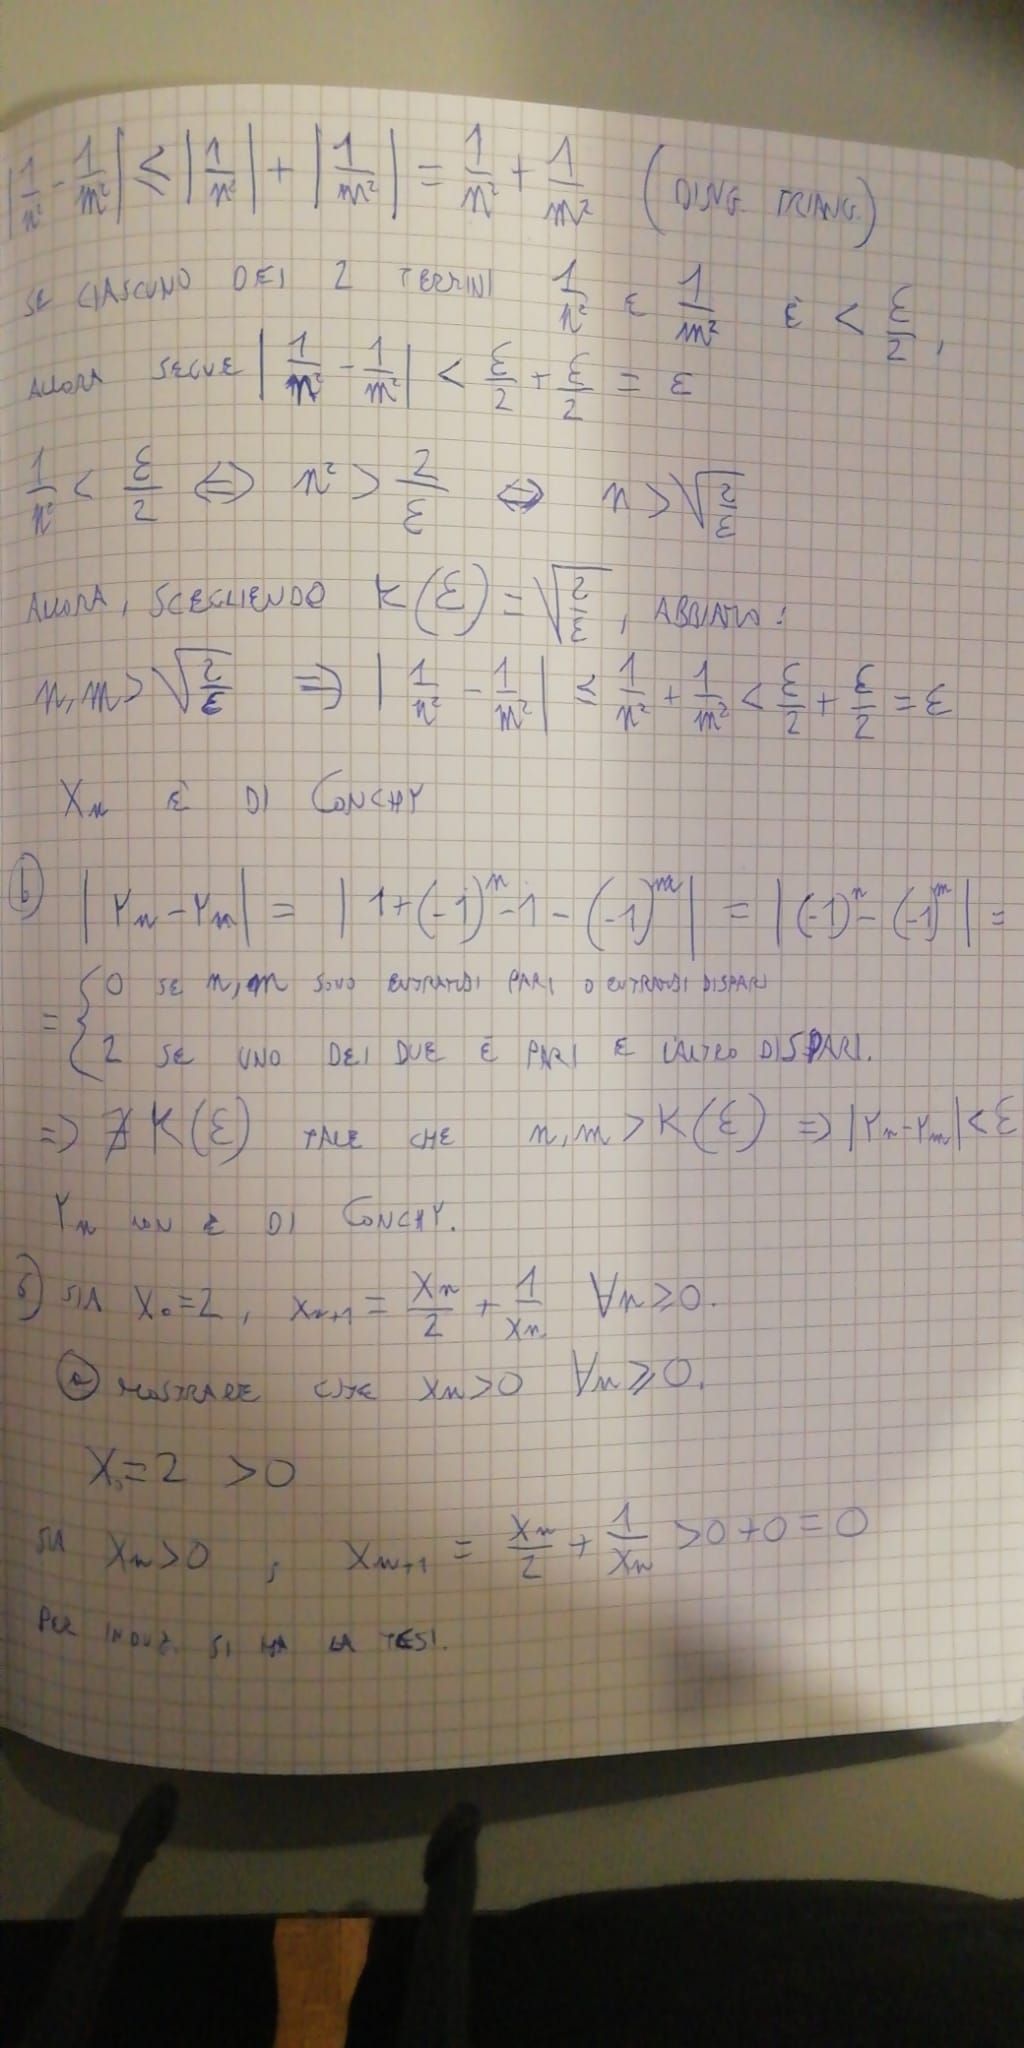 |1/n² - 1/m²| ≤ |1/n²| + |1/m²| = 1/n² + 1/m² (DISUG. TRIANG.)
SE CIASCUNO DEI 2 TERMINI 1/n² E 1/m² È < ε/2,
ALLORA SEGUE |1/n² - 1/m²| < ε/2 + ε/2 = ε
1/n² < ε/2 ⇔ n² > 2/ε ⇔ n > √(2/ε)
ALLORA, SCEGLIENDO K(ε) = √(2/ε), ABBIAMO:
n, m > √(2/ε) ⇒ |1/n² - 1/m²| ≤ 1/n² + 1/m² < ε/2 + ε/2 = ε
Xn È DI CONCHY
b) |Yn - Ym| = |1+(-1)^n - 1 - (-1)^m| = |(-1)^n - (-1)^m| =
= { 0 SE n, m SONO ENTRAMBI PARI O ENTRAMBI DISPARI
2 SE UNO DEI DUE È PARI E L'ALTRO DISPARI.
⇒ ∄ K(ε) TALE CHE n, m > K(ε) ⇒ |Yn - Ym| < ε
Yn NON È DI CONCHY.
6) SIA X₀ = 2, Xn+1 = Xn/2 + 1/Xn ∀n ≥ 0.
a) MOSTRARE CHE Xn > 0 ∀n ≥ 0.
X₀ = 2 > 0
SIA Xn > 0 , Xn+1 = Xn/2 + 1/Xn > 0 + 0 = 0
PER INDUZ. SI HA LA TESI.